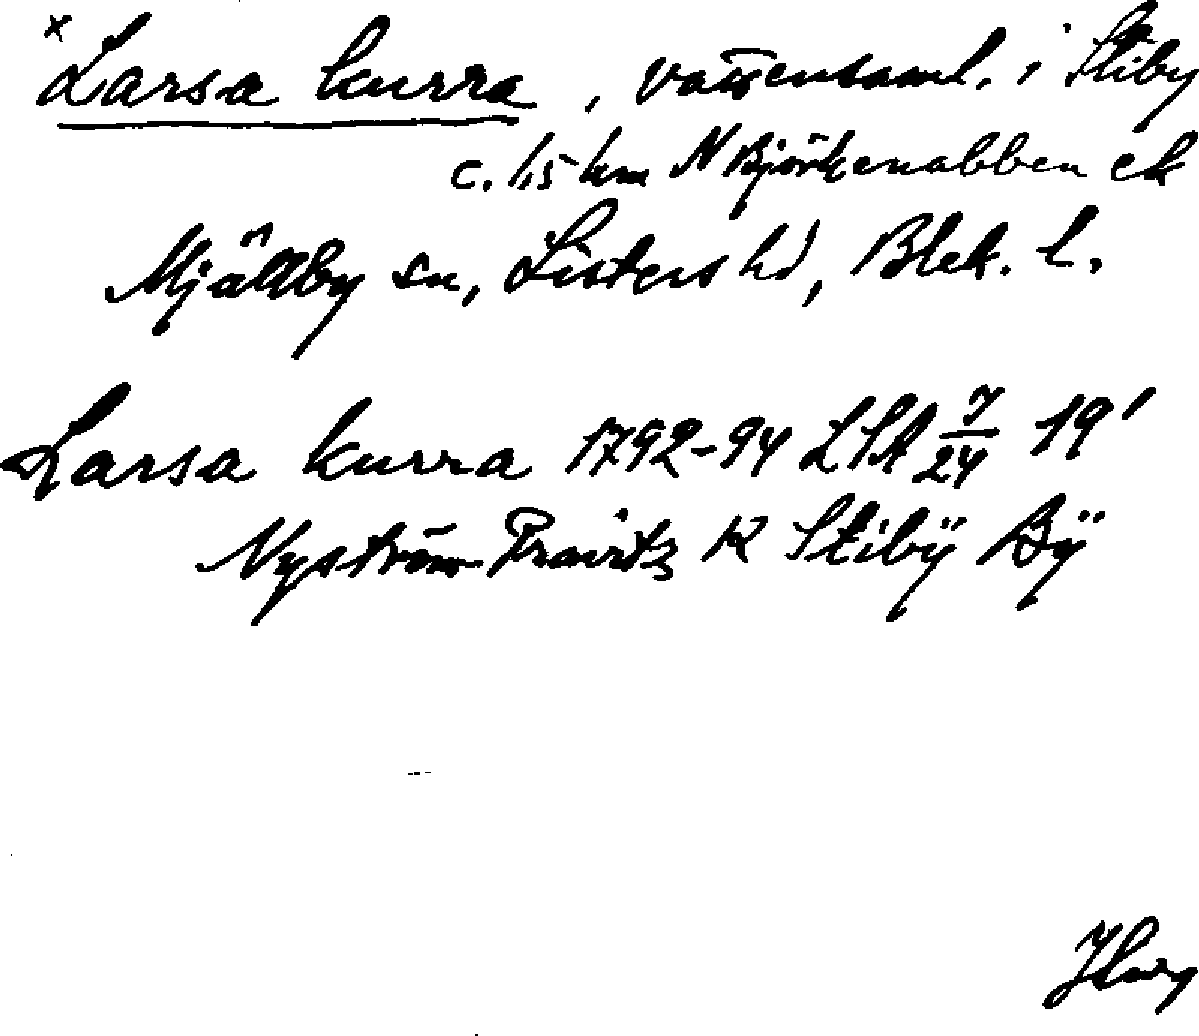 x Larsa kurra, vattensaml. i Stiby
c. 1,5 km N Björkenabben ek
Mjällby sn, Listers hd, Blek. l.
Larsa kurra 1792-94 LSA 7/24 19'
Nyström-Pravitz K Stibÿ Bÿ